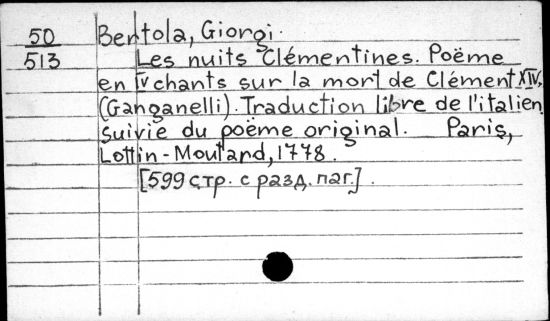 50 Bertola, Giorgi.
513 Les nuits Clémentines. Poëme
en IV chants sur la mort de Clément XIV.
(Ganganelli). Traduction libre de l'italien
suivie du poëme original. Paris,
Lottin-Moutard, 1778.
[599 стр. с разд. паг.].